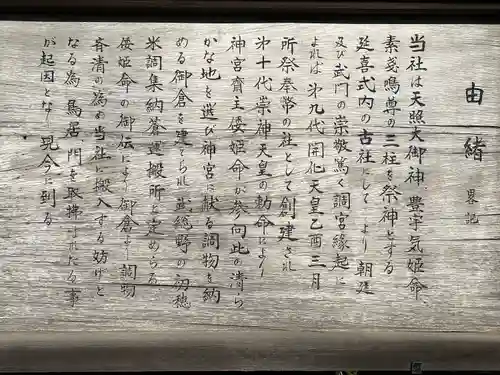 由緒 畧記
当社は天照大御神、豊宇気姫命、
素戔鳴尊の三柱を祭神とする
延喜式内の古社にして より 朝廷
及び武門の崇敬篤く調宮縁起に
よれば 第九代開化天皇乙酉三月
所祭奉幣の社として創建され
第十代崇神天皇の勅命により
神宮斎主倭姫命が参向此の清ら
かな地を選び神宮に献る調物を納
める御倉を建てられ武総野の初穂
米調集納蒼運搬所と定めらる
倭姫命の御伝により御倉より調物
斉清の為め当社に搬入する妨げと
なる為 鳥居 門を取拂はれたる事
が起因となり現今に到る